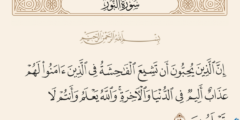 سُورَةُ النُّورِ
بِسْمِ ٱللَّهِ ٱلرَّحْمَٰنِ ٱلرَّحِيمِ
إِنَّ ٱلَّذِينَ يُحِبُّونَ أَن تَشِيعَ ٱلْفَٰحِشَةُ فِى ٱلَّذِينَ ءَامَنُوا۟ لَهُمْ
عَذَابٌ أَلِيمٌ فِى ٱلدُّنْيَا وَٱلْـَٔاخِرَةِ وَٱللَّهُ يَعْلَمُ وَأَنتُمْ لَا